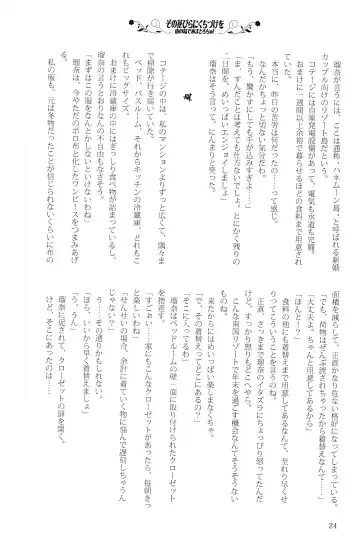 その花びらにくちづけを
瑠奈が言うには、ここは通称・ハネムーン島、と呼ばれる新婚
カップル向けのリゾート島だという。
コテージには自家発電設備があって、電気も水道も完備。
おまけに一週間以上余裕で暮らせるほどの食料まで用意され
ていて。
本当に、昨日の苦労は何だったの……って感じ。
なんだかちょっと切ない気分だわ。
「もう、驚かすにしても手が込みすぎよ……」
「ま、すんだことは考えてもしかたないわ。とにかく残りの
二日間を、めいっぱいエンジョイしましょ」
瑠奈はそう言って、にんまりと笑った。
コテージの中は、私のマンションよりずっと広くて、隅々ま
で掃除が行き届いていた。
ベッドルーム、バスルーム、それからキッチンの冷蔵庫、どれもこ
れもビッグサイズ。
おまけに冷蔵庫の中にはぎっしり食べ物が詰まっているし、
瑠奈の言うとおりなんの不自由もなさそう。
「まずはこの服をなんとかしないといけないわね」
瑠奈は、今やただのボロ布と化したワンピースをつまみあげ
た。
私の服も、元は冬物だったことが信じられないくらいに布の
面積を減らして、正直かなり危ない格好になっている。
「でも、荷物はぜんぶ流されちゃったから着替えなんて……」
「大丈夫よ。ちゃんと用意してあるから」
「ほんとー？」
食料の他にも着替えまで用意してあるなんて、至れり尽くせ
りってこういうことを言うのね。
正直、さっきまで瑠奈のイタズラにちょっぴり怒ってたんだ
けど、すっかり怒りもどこへやら。
こんな南国リゾートで年末を過ごす機会なんてそうそうない
ものね。
来たからにはめいっぱい楽しまなくちゃ。
「で、その着替えってどこにあるの？」
瑠奈はベッドルームの壁一面に取り付けられたクローゼット
を指差す。
「すごぉい……家にもこんなクローゼットがあったら、毎朝きっ
「せんせいの場合、余計に着ていく物に悩んで遅刻しちゃうん
じゃない？」
う……その通りかもしれない。
「ほら、いいから早く着替えましょ」
「う、うん」
瑠奈に促されて、クローゼットの扉を開く。
けど、そこにあったのは――！
24